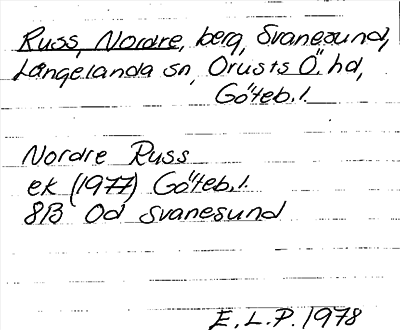 Russ, Nordre, berg, Svanesund,
Långelanda sn, Orusts Ö. hd,
Göteb. l.
Nordre Russ
ek (1977) Göteb. l.
8B 0d Svanesund
E. L. P. 1978